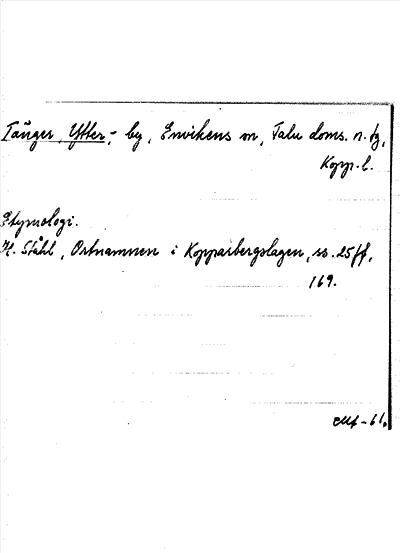 Tänger, Ytter-, by, Envikens sn, Falu doms. n. tg,
Kopp. l.
Etymologi.
H. Ståhl, Ortnamnen i Kopparbergslagen, ss. 25 ff,
169.
-61.